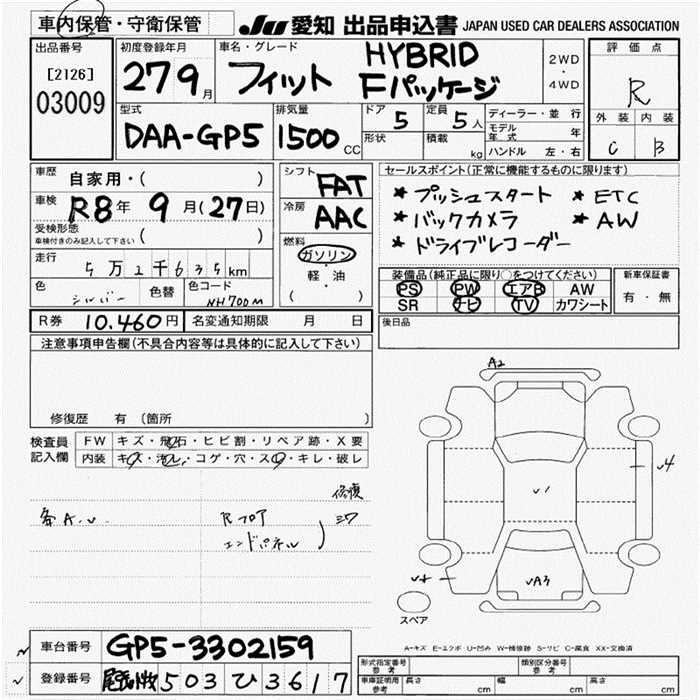 車内保管・守衛保管
JU 愛知 出品申込書 JAPAN USED CAR DEALERS ASSOCIATION
出品番号
[2126]
03009
初度登録年月
27 9月
車名・グレード
フィット HYBRID Fパッケージ
2WD・4WD
評価点
R
外装 内装
C B
型式
DAA-GP5
排気量
1500 CC
ドア 5
形状
定員 5人
積載 kg
ディーラー・並行
モデル年式 年
ハンドル 左・右
車歴 自家用・( )
車検 R8年 9月(27日)
受検形態
車検付きのみ記入して下さい ( )
走行 5万2千635km
色 シルバー 色替 色コード NH700M
シフト FAT
冷房 AAC
燃料
ガソリン
軽・油
( )
セールスポイント(正常に機能するものに限ります)
* プッシュスタート * ETC
* バックカメラ * AW
* ドライブレコーダー
装備品(純正品に限り○をつけてください)
PS PW エアB AW
SR ナビ TV カワシート
新車保証書
有・無
R券 10.460円 名変通知期限 月 日
後日品
注意事項申告欄(不具合内容等は具体的に記入して下さい)
修復歴 有 (箇所
検査員記入欄
FW キズ・飛石・ヒビ割・リペア跡・X要
内装 キズ・汚レ・コゲ・穴・スレ・キレ・破レ
修復
Rフロア
エンドパネル
A2
U1
U4
UA3
スペア
A-キズ E-エクボ U-凹み W-補修跡 S-サビ C-腐食 XX-交換済
車台番号 GP5-3302159
登録番号 尾張小牧 503 ひ 3617
形式指定番号 参考
類別区分番号 参考
車庫証明用 参考 長さ cm 幅 cm 高さ cm